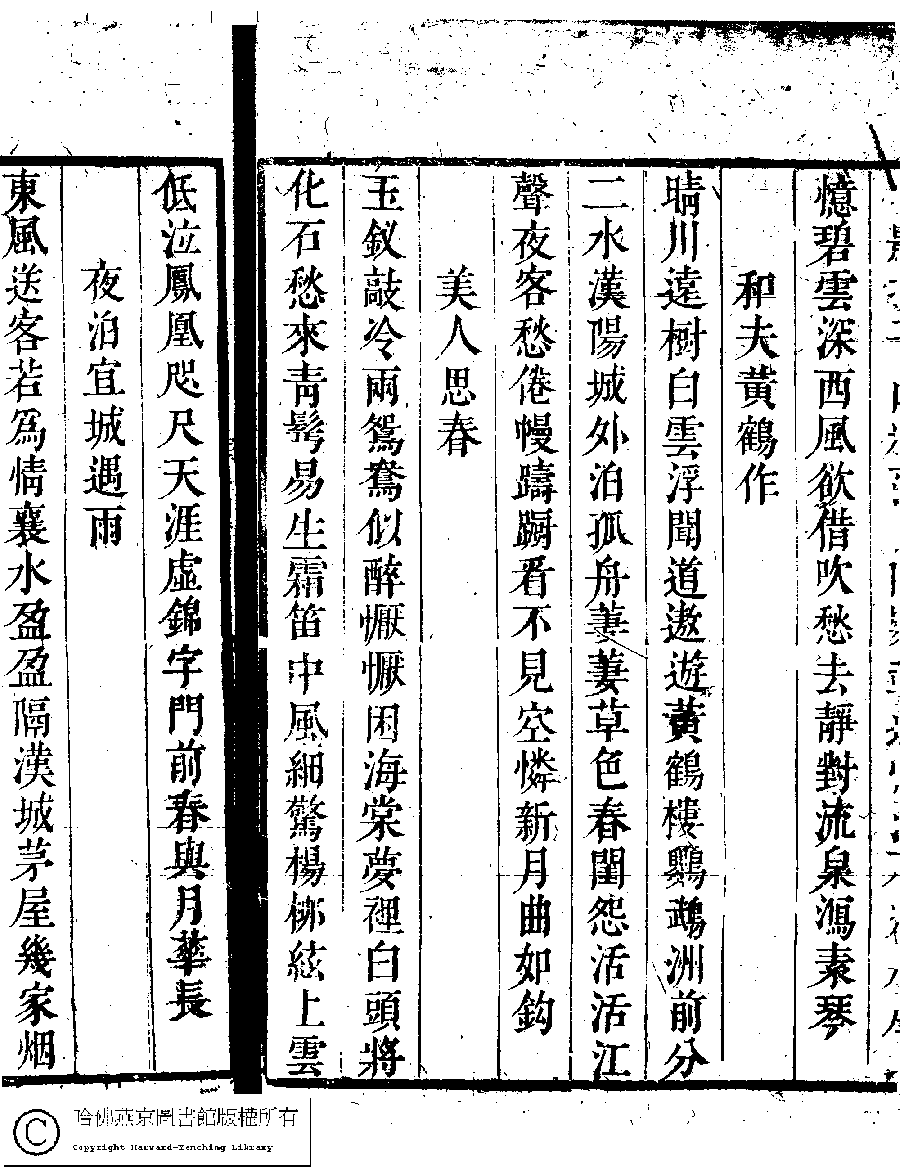 憶碧雲深西風欲借吹愁去靜對流泉瀉素琴
和夫黃鶴作
晴川遠樹白雲浮聞道遨遊黃鶴樓鸚鵡洲前分
二水漢陽城外泊孤舟萋萋草色春閨怨活活江
聲夜客愁倦幔躊躕看不見空憐新月曲如鈎
美人思春
玉釵敲冷兩鴛鴦似醉懨懨困海棠夢裡白頭將
化石愁來青髩易生霜笛中風細驚楊柳絃上雲
低泣鳳凰咫尺天涯虛錦字門前春與月華長
夜泊宜城遇雨
東風送客若爲情襄水盈盈隔漢城茅屋幾家烟
哈佛燕京圖書館版權所有
Copyright Harvard-Yenching Library